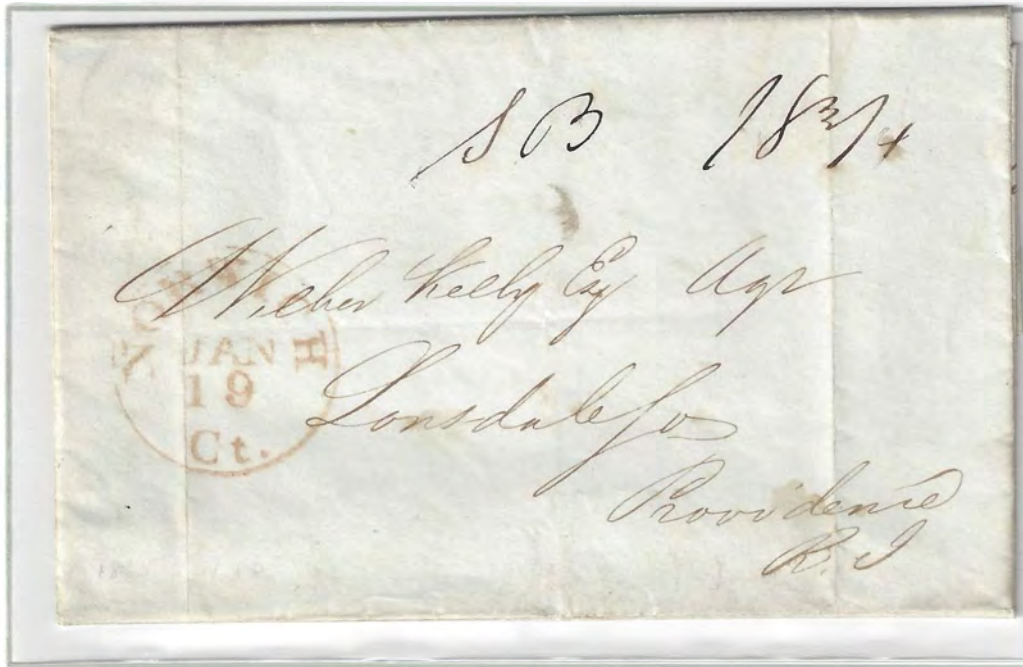 SB 18 3/4
Wilber Kelly Esq Agt
Lonsdale Co
Providence
R. I
N H
JAN
19
Ct.